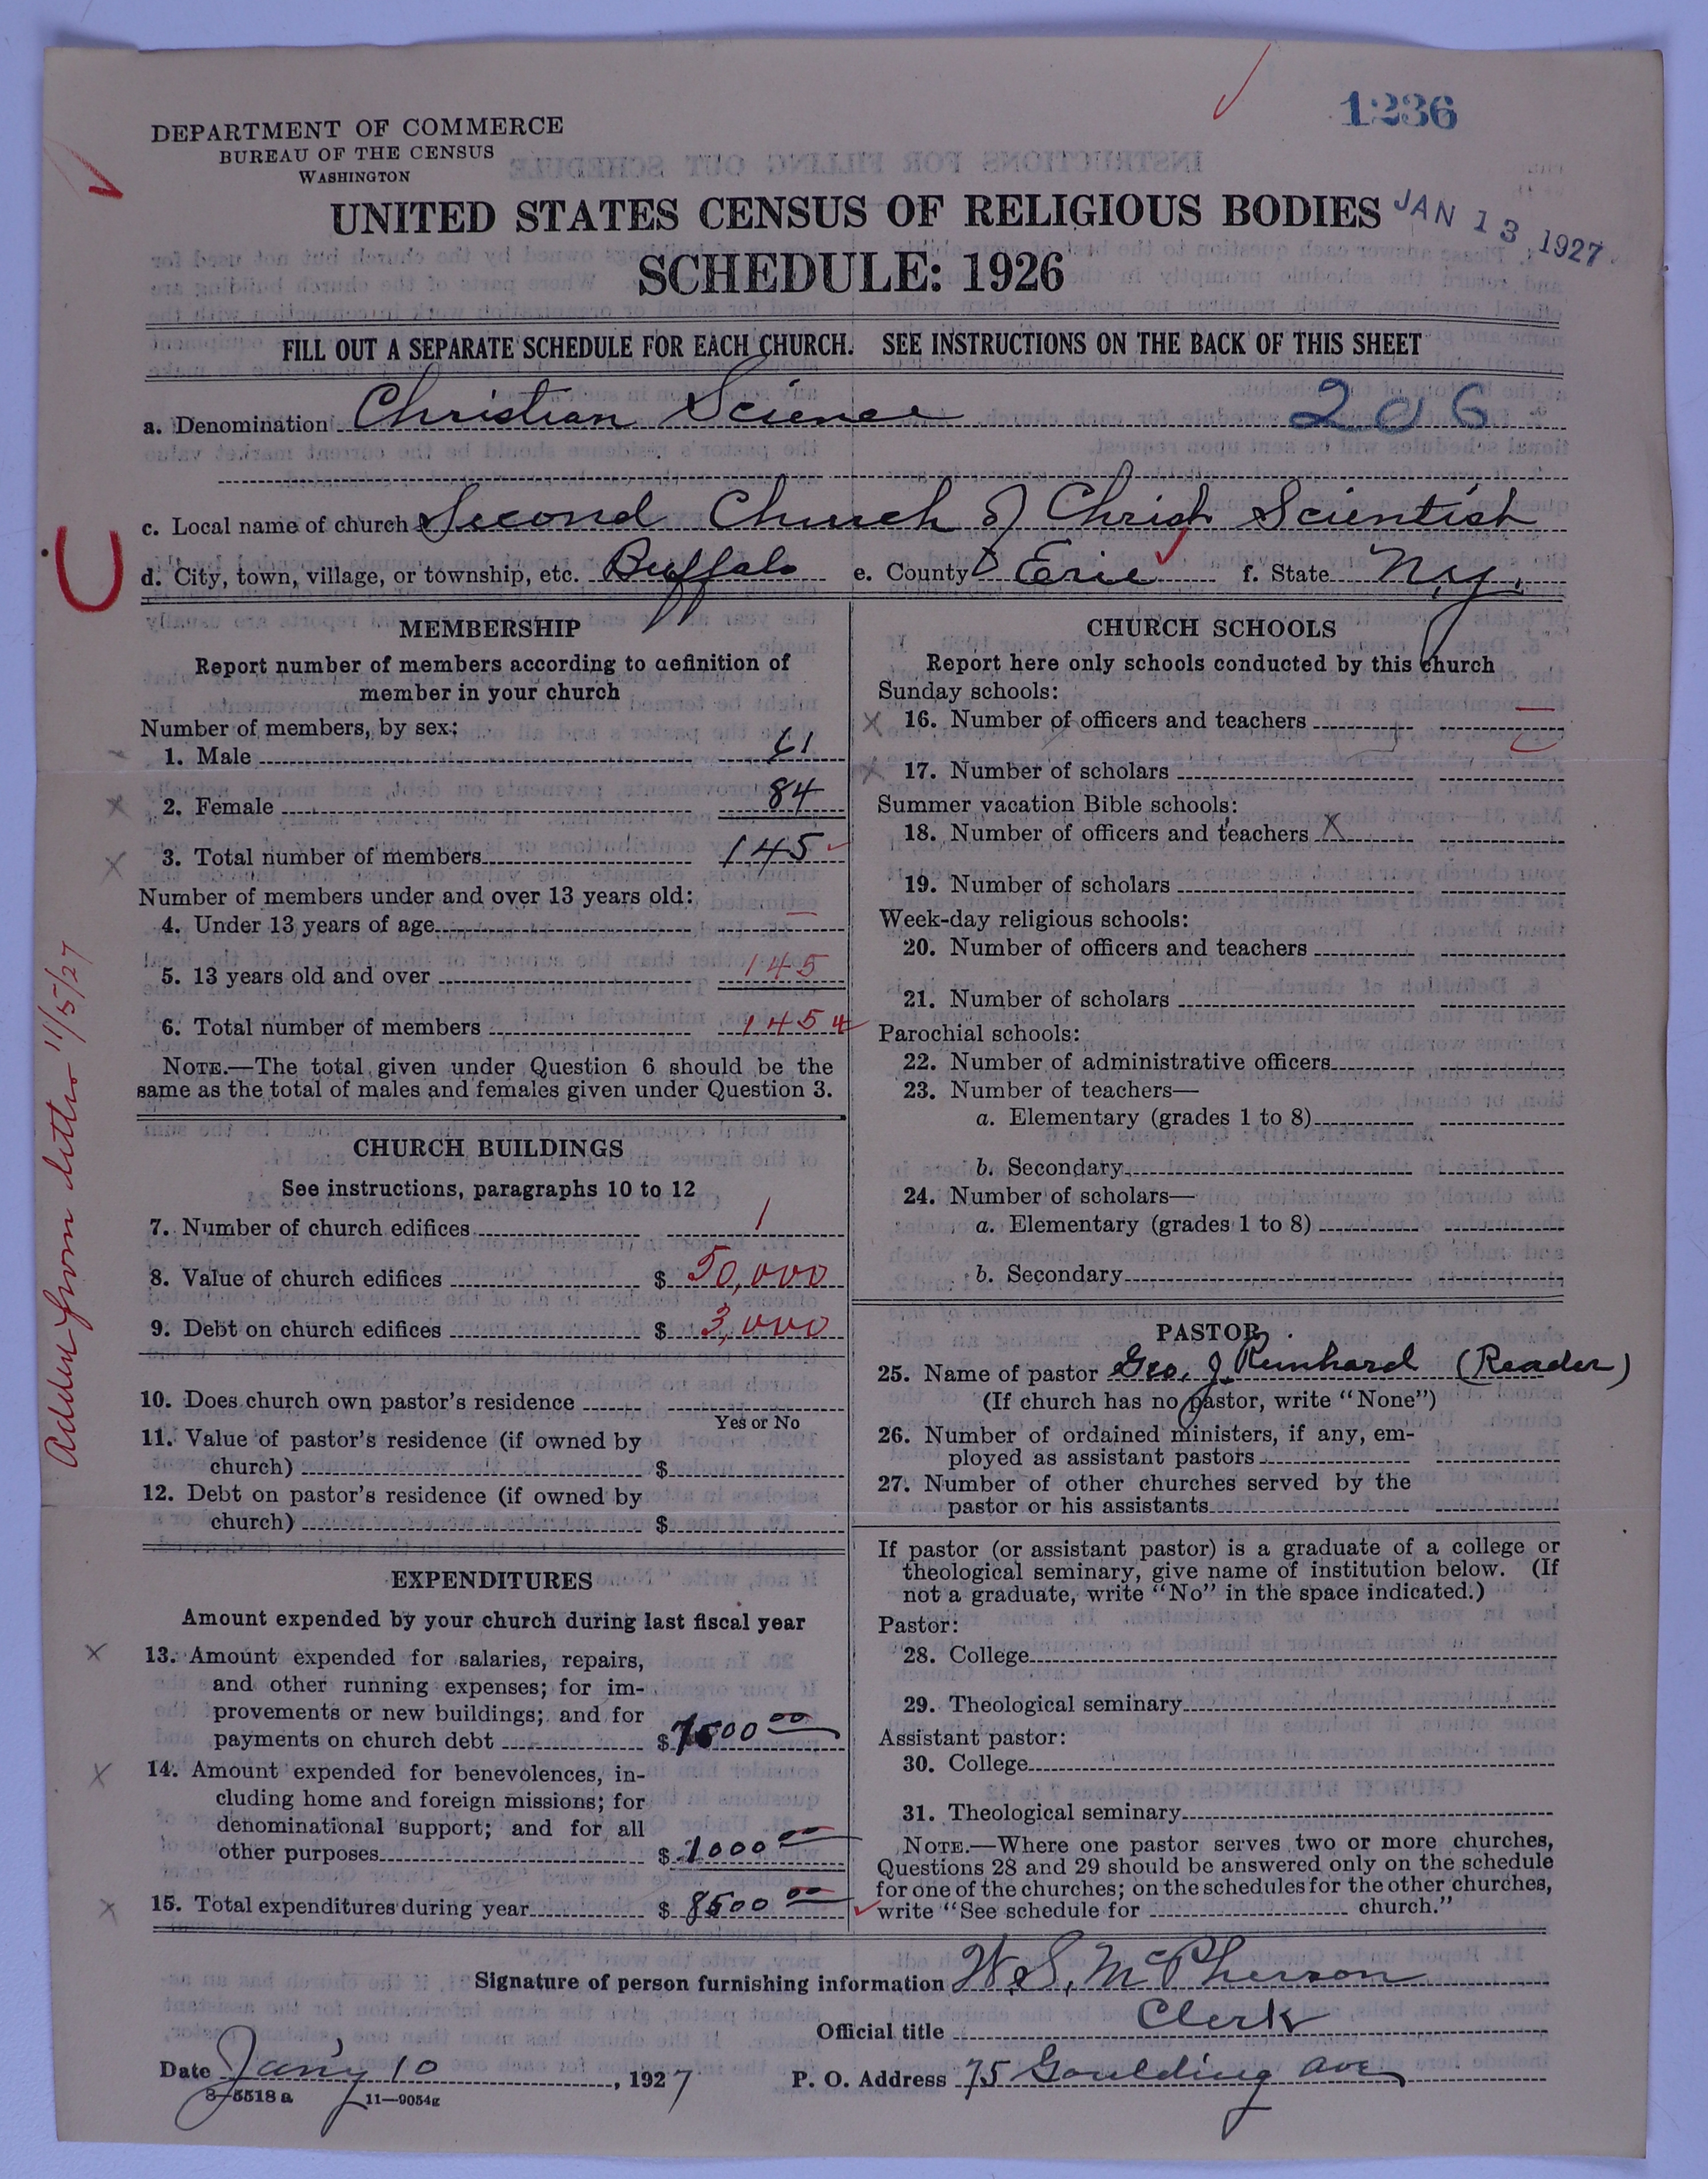 1236
DEPARTMENT OF COMMERCE
BUREAU OF THE CENSUS
WASHINGTON
UNITED STATES CENSUS OF RELIGIOUS BODIES
JAN 13 1927
SCHEDULE: 1926
FILL OUT A SEPARATE SCHEDULE FOR EACH CHURCH. SEE INSTRUCTIONS ON THE BACK OF THIS SHEET
a. Denomination Christian Science 206
c. Local name of church Second Church of Christ Scientist
d. City, town, village, or township, etc. Buffalo e. County Erie f. State N.Y.
MEMBERSHIP
Report number of members according to definition of
member in your church
Number of members, by sex:
1. Male 61
2. Female 84
3. Total number of members 145
Number of members under and over 13 years old:
4. Under 13 years of age —
5. 13 years old and over 145
6. Total number of members 145
NOTE.—The total given under Question 6 should be the
same as the total of males and females given under Question 3.
CHURCH BUILDINGS
See instructions, paragraphs 10 to 12
7. Number of church edifices 1
8. Value of church edifices $ 50,000
9. Debt on church edifices $ 3,000
10. Does church own pastor's residence
Yes or No
11. Value of pastor's residence (if owned by
church) $
12. Debt on pastor's residence (if owned by
church) $
EXPENDITURES
Amount expended by your church during last fiscal year
13. Amount expended for salaries, repairs,
and other running expenses; for im-
provements or new buildings; and for
payments on church debt $ 7500 00
14. Amount expended for benevolences, in-
cluding home and foreign missions; for
denominational support; and for all
other purposes $ 1000 00
15. Total expenditures during year $ 8500 00
Added from letter 11/5/27
CHURCH SCHOOLS
Report here only schools conducted by this church
Sunday schools:
16. Number of officers and teachers
17. Number of scholars
Summer vacation Bible schools:
18. Number of officers and teachers X
19. Number of scholars
Week-day religious schools:
20. Number of officers and teachers
21. Number of scholars
Parochial schools:
22. Number of administrative officers
23. Number of teachers—
a. Elementary (grades 1 to 8)
b. Secondary
24. Number of scholars—
a. Elementary (grades 1 to 8)
b. Secondary
PASTOR
25. Name of pastor Geo. J. Reinhard (Reader)
(If church has no pastor, write "None")
26. Number of ordained ministers, if any, em-
ployed as assistant pastors
27. Number of other churches served by the
pastor or his assistants
If pastor (or assistant pastor) is a graduate of a college or
theological seminary, give name of institution below. (If
not a graduate, write "No" in the space indicated.)
Pastor:
28. College
29. Theological seminary
Assistant pastor:
30. College
31. Theological seminary
NOTE.—Where one pastor serves two or more churches,
Questions 28 and 29 should be answered only on the schedule
for one of the churches; on the schedules for the other churches,
write "See schedule for church."
Signature of person furnishing information W. S. McPherson
Official title Clerk
Date Jan'y 10, 1927 P. O. Address 75 Goulding Ave
8-5518 a 11—9054g